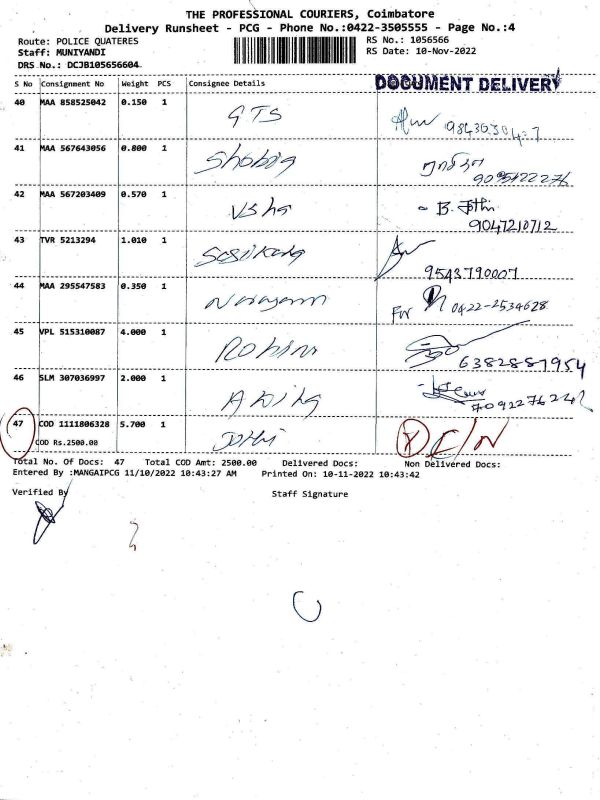 THE PROFESSIONAL COURIERS, Coimbatore
Delivery Runsheet - PCG - Phone No.:0422-3505555 - Page No.:4
Route: POLICE QUATERES RS No.: 1056566
Staff: MUNIYANDI RS Date: 10-Nov-2022
DRS No.: DCJB105656604
S No Consignment No Weight PCS Consignee Details DOCUMENT DELIVERY
40 MAA 858525042 0.150 1 GTS
41 MAA 567643056 0.800 1 Shobig
9095122276
42 MAA 567203409 0.570 1 Usha B. Jothi
9047210712
43 TVR 5213294 1.010 1 Sasikang
9543790007
44 MAA 295547583 0.350 1 Narayann For 0422-2534628
45 VPL 515310087 4.000 1 Rohini
6382887954
46 SLM 307036997 2.000 1
47 COD 1111806328 5.700 1 Jothi X C/N
COD Rs.2500.00
Total No. Of Docs: 47 Total COD Amt: 2500.00 Delivered Docs: Non Delivered Docs:
Entered By :MANGAIPCG 11/10/2022 10:43:27 AM Printed On: 10-11-2022 10:43:42
Verified By Staff Signature